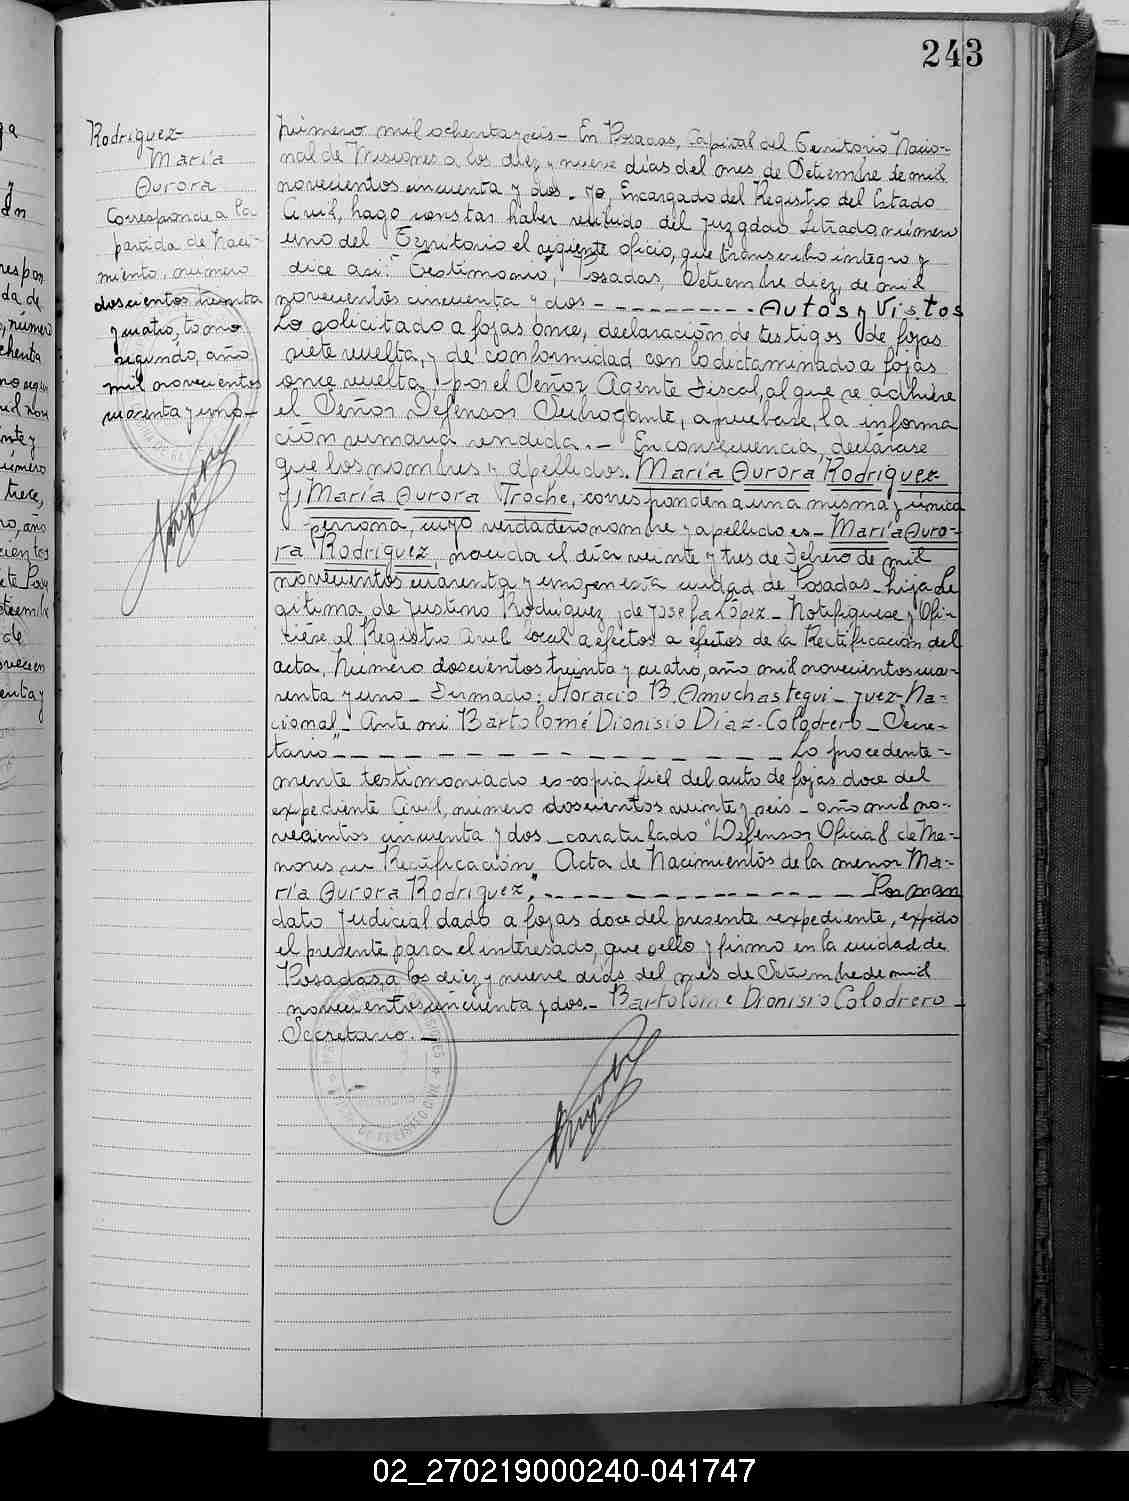 243
Rodriguez-
María
Aurora
Corresponde a la
partida de Naci-
miento, número
doscientos treinta
y cuatro, tomo
segundo, año
mil novecientos
cuarenta y uno-
Número mil ochenta y seis - En Posadas, Capital del Territorio Nacio-
nal de Misiones a los diez y nueve días del mes de Setiembre de mil
novecientos cincuenta y dos - yo, Encargado del Registro del Estado
Civil, hago constar haber recibido del Juzgado Letrado número
uno del Territorio el siguiente oficio, que transcribo integro y
dice así: "Testimonio, Posadas, Setiembre diez, de mil
novecientos cincuenta y dos - - - - - - - - - Autos y Vistos
Lo solicitado a fojas once, declaración de testigos de fojas
siete vuelta, y de conformidad con lo dictaminado a fojas
once vuelta, por el Señor Agente Fiscal, al que se adhiere
el Señor Defensor Subrogante, apruebase, la informa
ción sumaria rendida. - En consecuencia, declárase
que los nombres y apellidos. María Aurora Rodriguez-
y, María Aurora Troche, corresponden a una misma y única
persona, cuyo verdadero nombre y apellido es - María Auro-
ra Rodríguez, nacida el día veinte y tres de Febrero de mil
novecientos cuarenta y uno, en esta ciudad de Posadas - hija le
gítima de Justino Rodríguez y de Josefa López - Notifíquese y Ofi-
ciése al Registro Civil local a efectos a efectos de la Rectificación del
acta, Número doscientos treinta y cuatro, año mil novecientos cua-
renta y uno - Firmado: Horacio B. Amuchastegui - Juez-Na-
cional - Ante mí Bartolomé Dionisio Diaz-Colodrero - Secre-
tario - - - - - - - - - - - - - Lo procedente-
mente testimoniado es-copia fiel del auto de fojas doce del
expediente Civil, número doscientos veinte y seis - año mil no-
vecientos cincuenta y dos - caratulado "Defensor Oficial de Me-
nores su Rectificación, Acta de Nacimientos de la menor Ma-
ría Aurora Rodriguez", - - - - - - - - - - - Por man
dato Judicial dado a fojas doce del presente expediente, expido
el presente para el interesado, que sello y firmo en la ciudad de
Posadas, a los diez y nueve días del mes de Setiembre de mil
novecientos cincuenta y dos. - Bartolomé Dionisio Colodrero -
Secretario. -
DE REGISTRO CIVIL
02_270219000240-041747